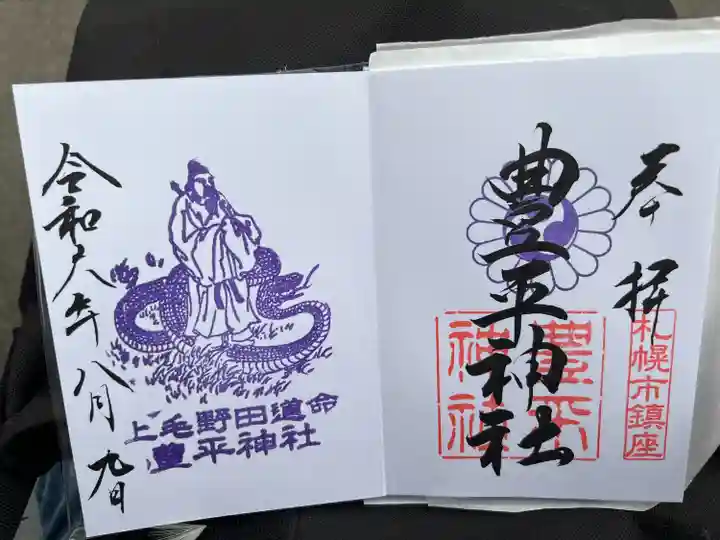 奉拝
札幌市鎮座
豊平神社
豊平
神社
上毛野田道命
豊平神社
令和六年八月九日